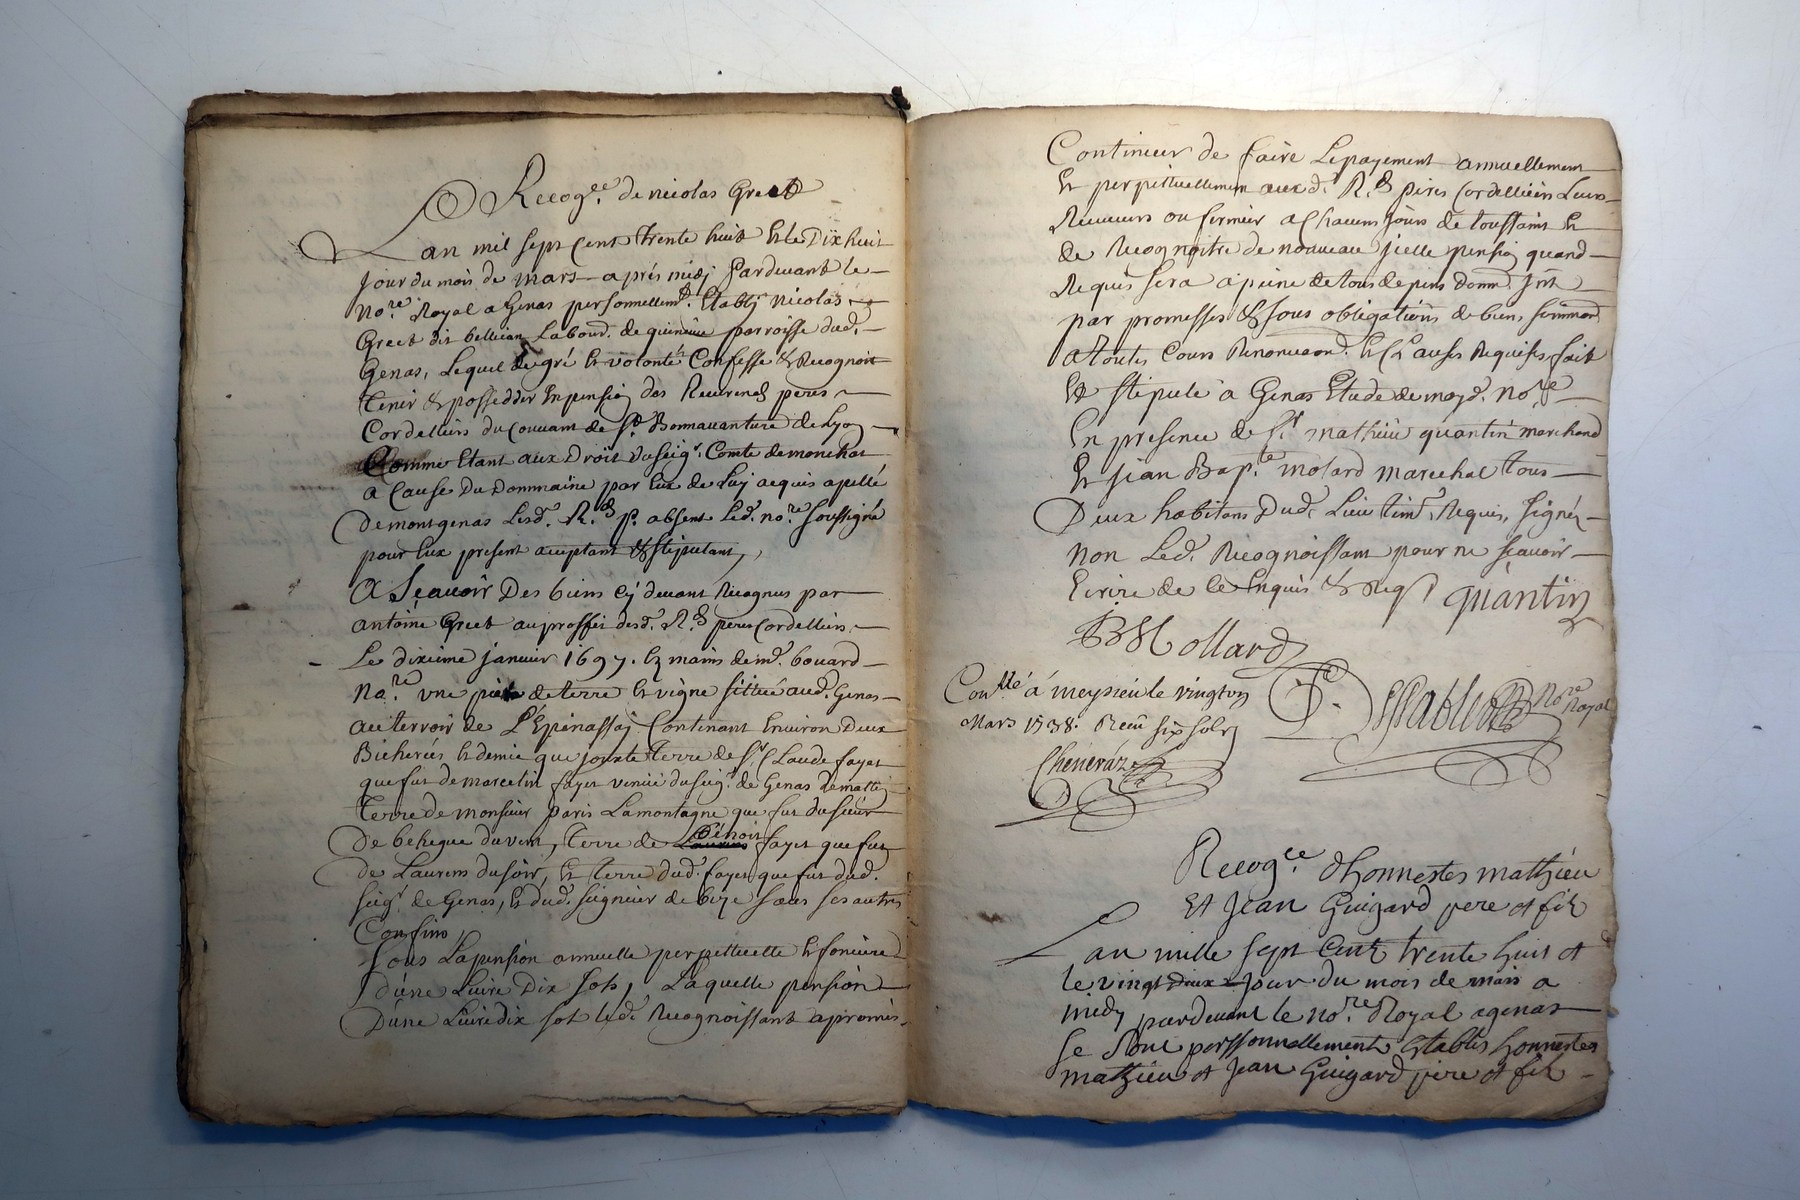 Recog.ce de nicolas Greet
Lan mil sept Cent trente huit Et le Dix huit
jour du mois de mars apres midj Pardevant le
no.re Royal a Genas personnellemt. Etablj nicolas
Greet dit bellian Labourd. de quineüe parroisse dud.
Genas, Lequel de gré Et volonté Confesse & Recognoit
tenir & possedder En pension des Reverends peres
Cordelliers du Couvant de St. Bonnavanture de Lyon
Comme Etant aux Droit du seigr. Comte de monchat
a Cause Du Dommaine par Eux de Luj acquis apellé
de montgenas Lesd. R.ds p. absent Led. no.re soussigné
pour Eux present acceptant & stipulant,
A Sçavoir Des biens cÿ devant Recognus par
antoine Greet au proffit desd. R.ds peres Cordelliers
Le dixieme janvier 1697. Ez mains de md. bouard
no.re une piece de terre Et vigne sittuée aud. Genas
au terroir de L'Epinassaj Contenant Environ Deux
Bicherées Et demie que jouxte terre de Sr. Claude fayet
que fut de marcelin fayet venüe du seigr. de Genas de matin
terre de monsieur paris Lamontagne que fut du sieur
de beheque du vent, terre de Bénoit fayet que fut
de Laurens du soir, Et terre dud. fayet que fut dud.
seigr. de Genas, Et dud. seigneur de bize saus ses autres
Confins
Sous La pension annuelle perpettuelle Et fonciere
d'une Livre Dix sols, Laquelle pension
D'une Livre dix sol led. Recognoissant a promis
Continuer de faire Le payement annuellement
Et perpettuellement aux d. R.ds peres Cordelliers Leurs
Receveurs ou fermier a Chacuns jours de toussaint Et
de Recognoitre de nouveau jcelle pension quand
Requis sera a peine de tous depens domm. jnt.
par promesses & sous obligations de biens, soûmission
a toutes Cours Renonciaon. Et Clauses Requises, fait
Et stipulé à Genas Etude de moyd. no.re
En presence de Sr. mathieu quantin marchand
Et jean Bap.te molard marechal tous
Deux habitans Dud. Lieu tém. Requis, signés
non Led. Recognoissant pour ne sçavoir
Ecrire de ce Enquis & Req.
quantin
JB Mollard
Con.llé á meysieu le vingt
Mars 1738. Receu six sols
no.re Royal
Recog.ce dhonnestes mathieu
Et Jean Guigard pere et fils
Lan mille sept Cent trente huit et
le vingt deux jour du mois de mars a
midy pardevant le no.re Royal a genas
se sont perssonnellement Etablis honnestes
mathieu et Jean Guigard pere et fils